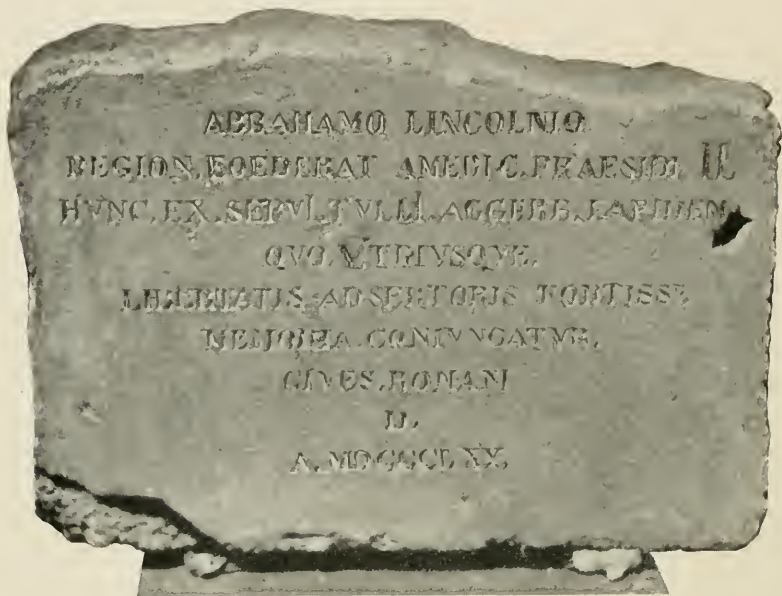 ABRAHAMO LINCOLNIO
REGION. FOEDERAT AMERIC. PRAESIDI II
HVNC. EX. SERVI. TVLLI. AGGERE. LAPIDEM
QVO. VTRIVSQVE.
LIBERTATIS. ADSERTORIS FORTISS.
MEMORIA. CONIVNGATVR.
CIVES. ROMANI
D.
A. MDCCCLXX.